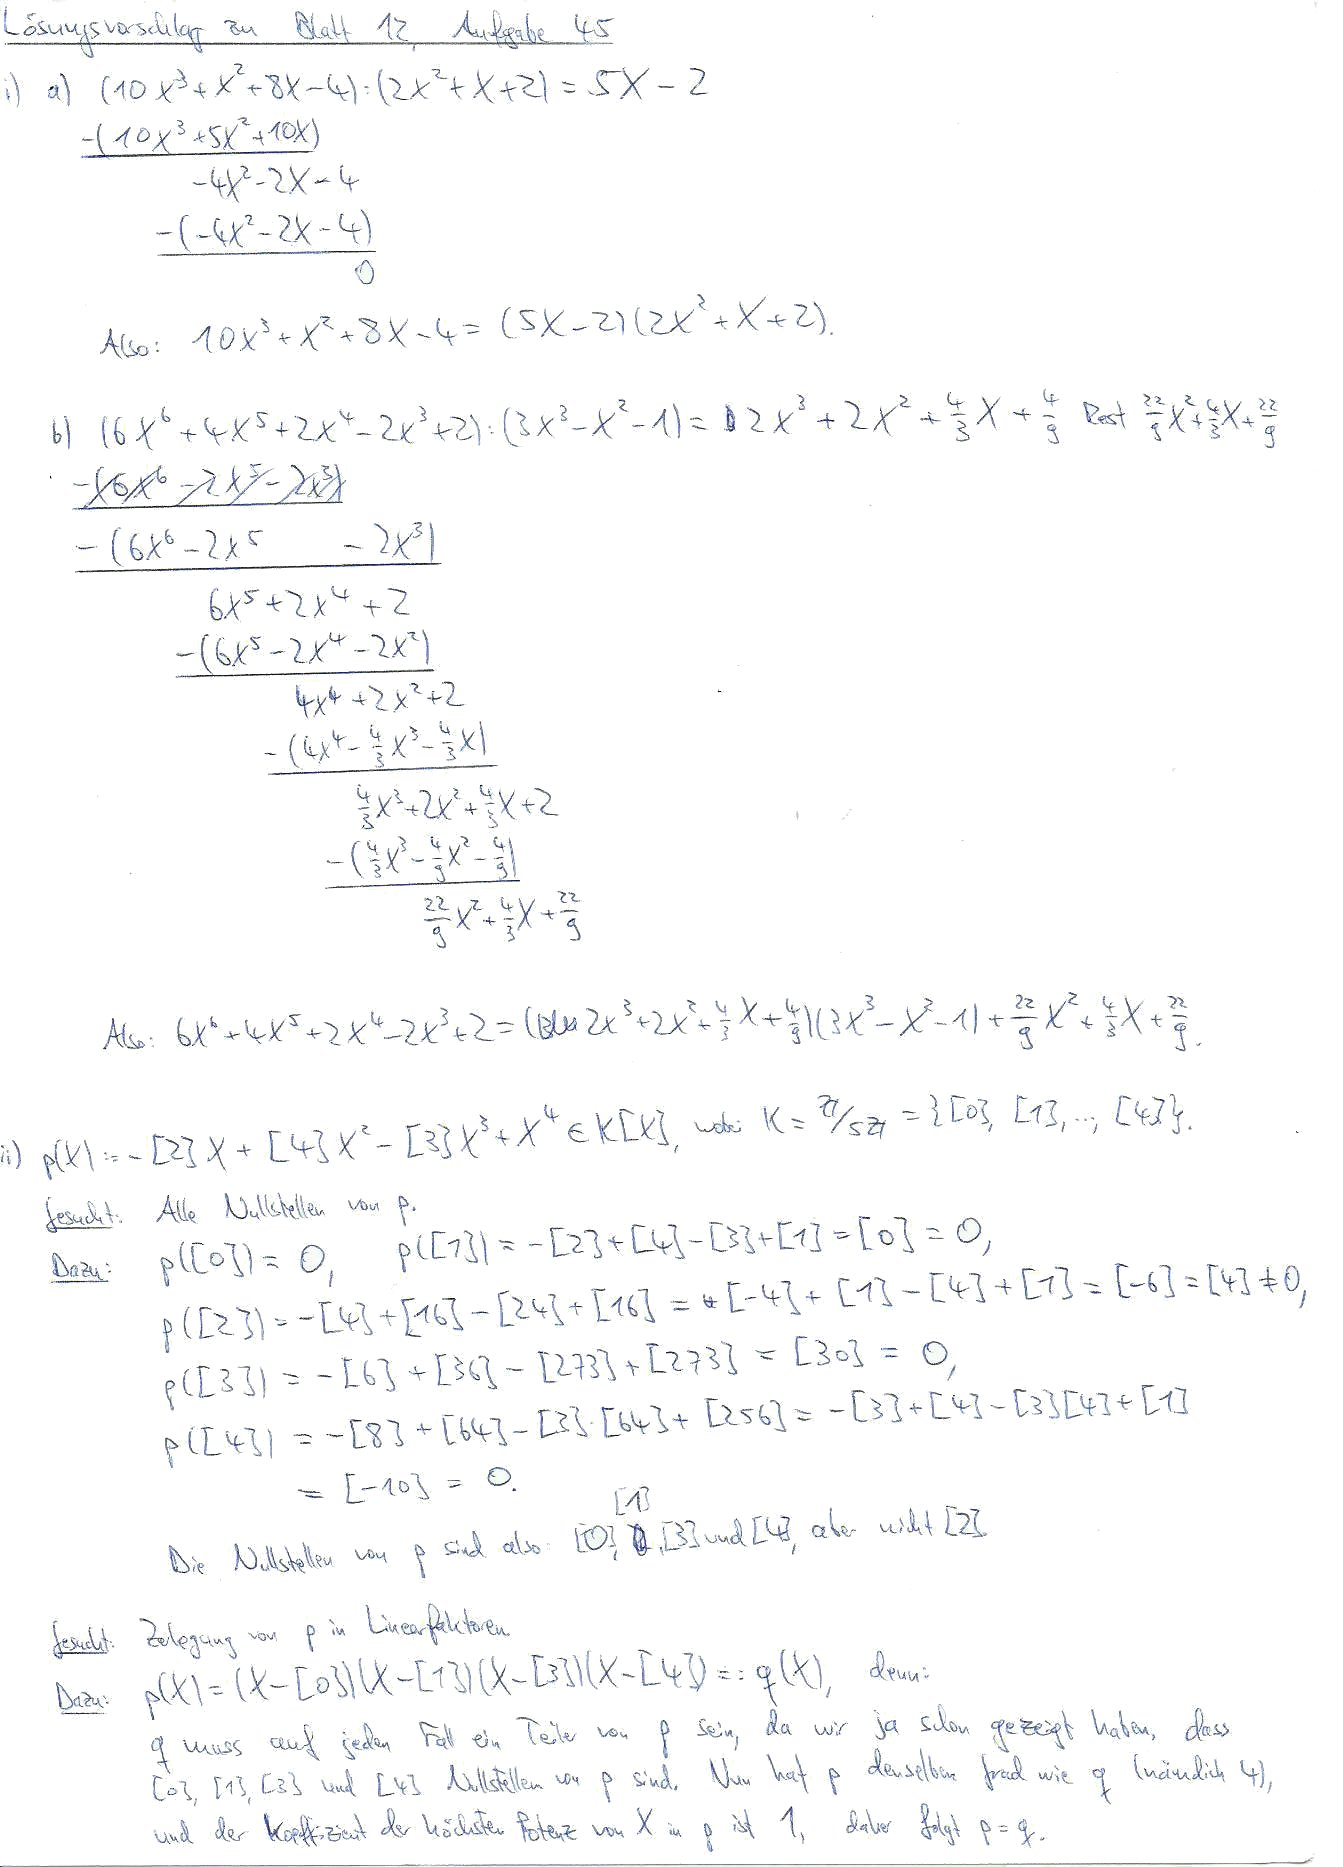 Lösungsvorschlag zu Blatt 12, Aufgabe 45
i) a) (10X³+X²+8X-4):(2X²+X+2)=5X-2
-(10X³+5X²+10X)
-4X²-2X-4
-(-4X²-2X-4)
0
Also: 10X³+X²+8X-4=(5X-2)(2X²+X+2).
b) (6X⁶+4X⁵+2X⁴-2X³+2):(3X³-X²-1)=2X³+2X²+4/3X+4/9 Rest 22/9X²+4/3X+22/9
-(6X⁶-2X⁵-2X³)
-(6X⁶-2X⁵ -2X³)
6X⁵+2X⁴+2
-(6X⁵-2X⁴-2X²)
4X⁴+2X²+2
-(4X⁴-4/3X³-4/3X)
4/3X³+2X²+4/3X+2
-(4/3X³-4/9X²-4/9)
22/9X²+4/3X+22/9
Also: 6X⁶+4X⁵+2X⁴-2X³+2=(2X³+2X²+4/3X+4/9)(3X³-X²-1)+22/9X²+4/3X+22/9.
ii) p(X):=-[2]X+[4]X²-[3]X³+X⁴∈K[X], wobei K=ℤ/5ℤ={[0],[1],...,[4]}.
Gesucht: Alle Nullstellen von p.
Dazu: p([0])=0, p([1])=-[2]+[4]-[3]+[1]=[0]=0,
p([2])=-[4]+[16]-[24]+[16]=[-4]+[1]-[4]+[1]=[-6]=[4]≠0,
p([3])=-[6]+[36]-[273]+[273]=[30]=0,
p([4])=-[8]+[64]-[3]·[64]+[256]=-[3]+[4]-[3][4]+[1]
=[-10]=0.
Die Nullstellen von p sind also: [0], [1], [3] und [4], aber nicht [2].
Gesucht: Zelegung von p in Linearfaktoren
Dazu: p(X)=(X-[0])(X-[1])(X-[3])(X-[4])=:q(X), denn:
q muss auf jeden Fall ein Teiler von p sein, da wir ja schon gezeigt haben, dass
[0], [1], [3] und [4] Nullstellen von p sind. Nun hat p denselben Grad wie q (nämlich 4),
und der Koeffizient der höchsten Potenz von X in p ist 1, daher folgt p=q.